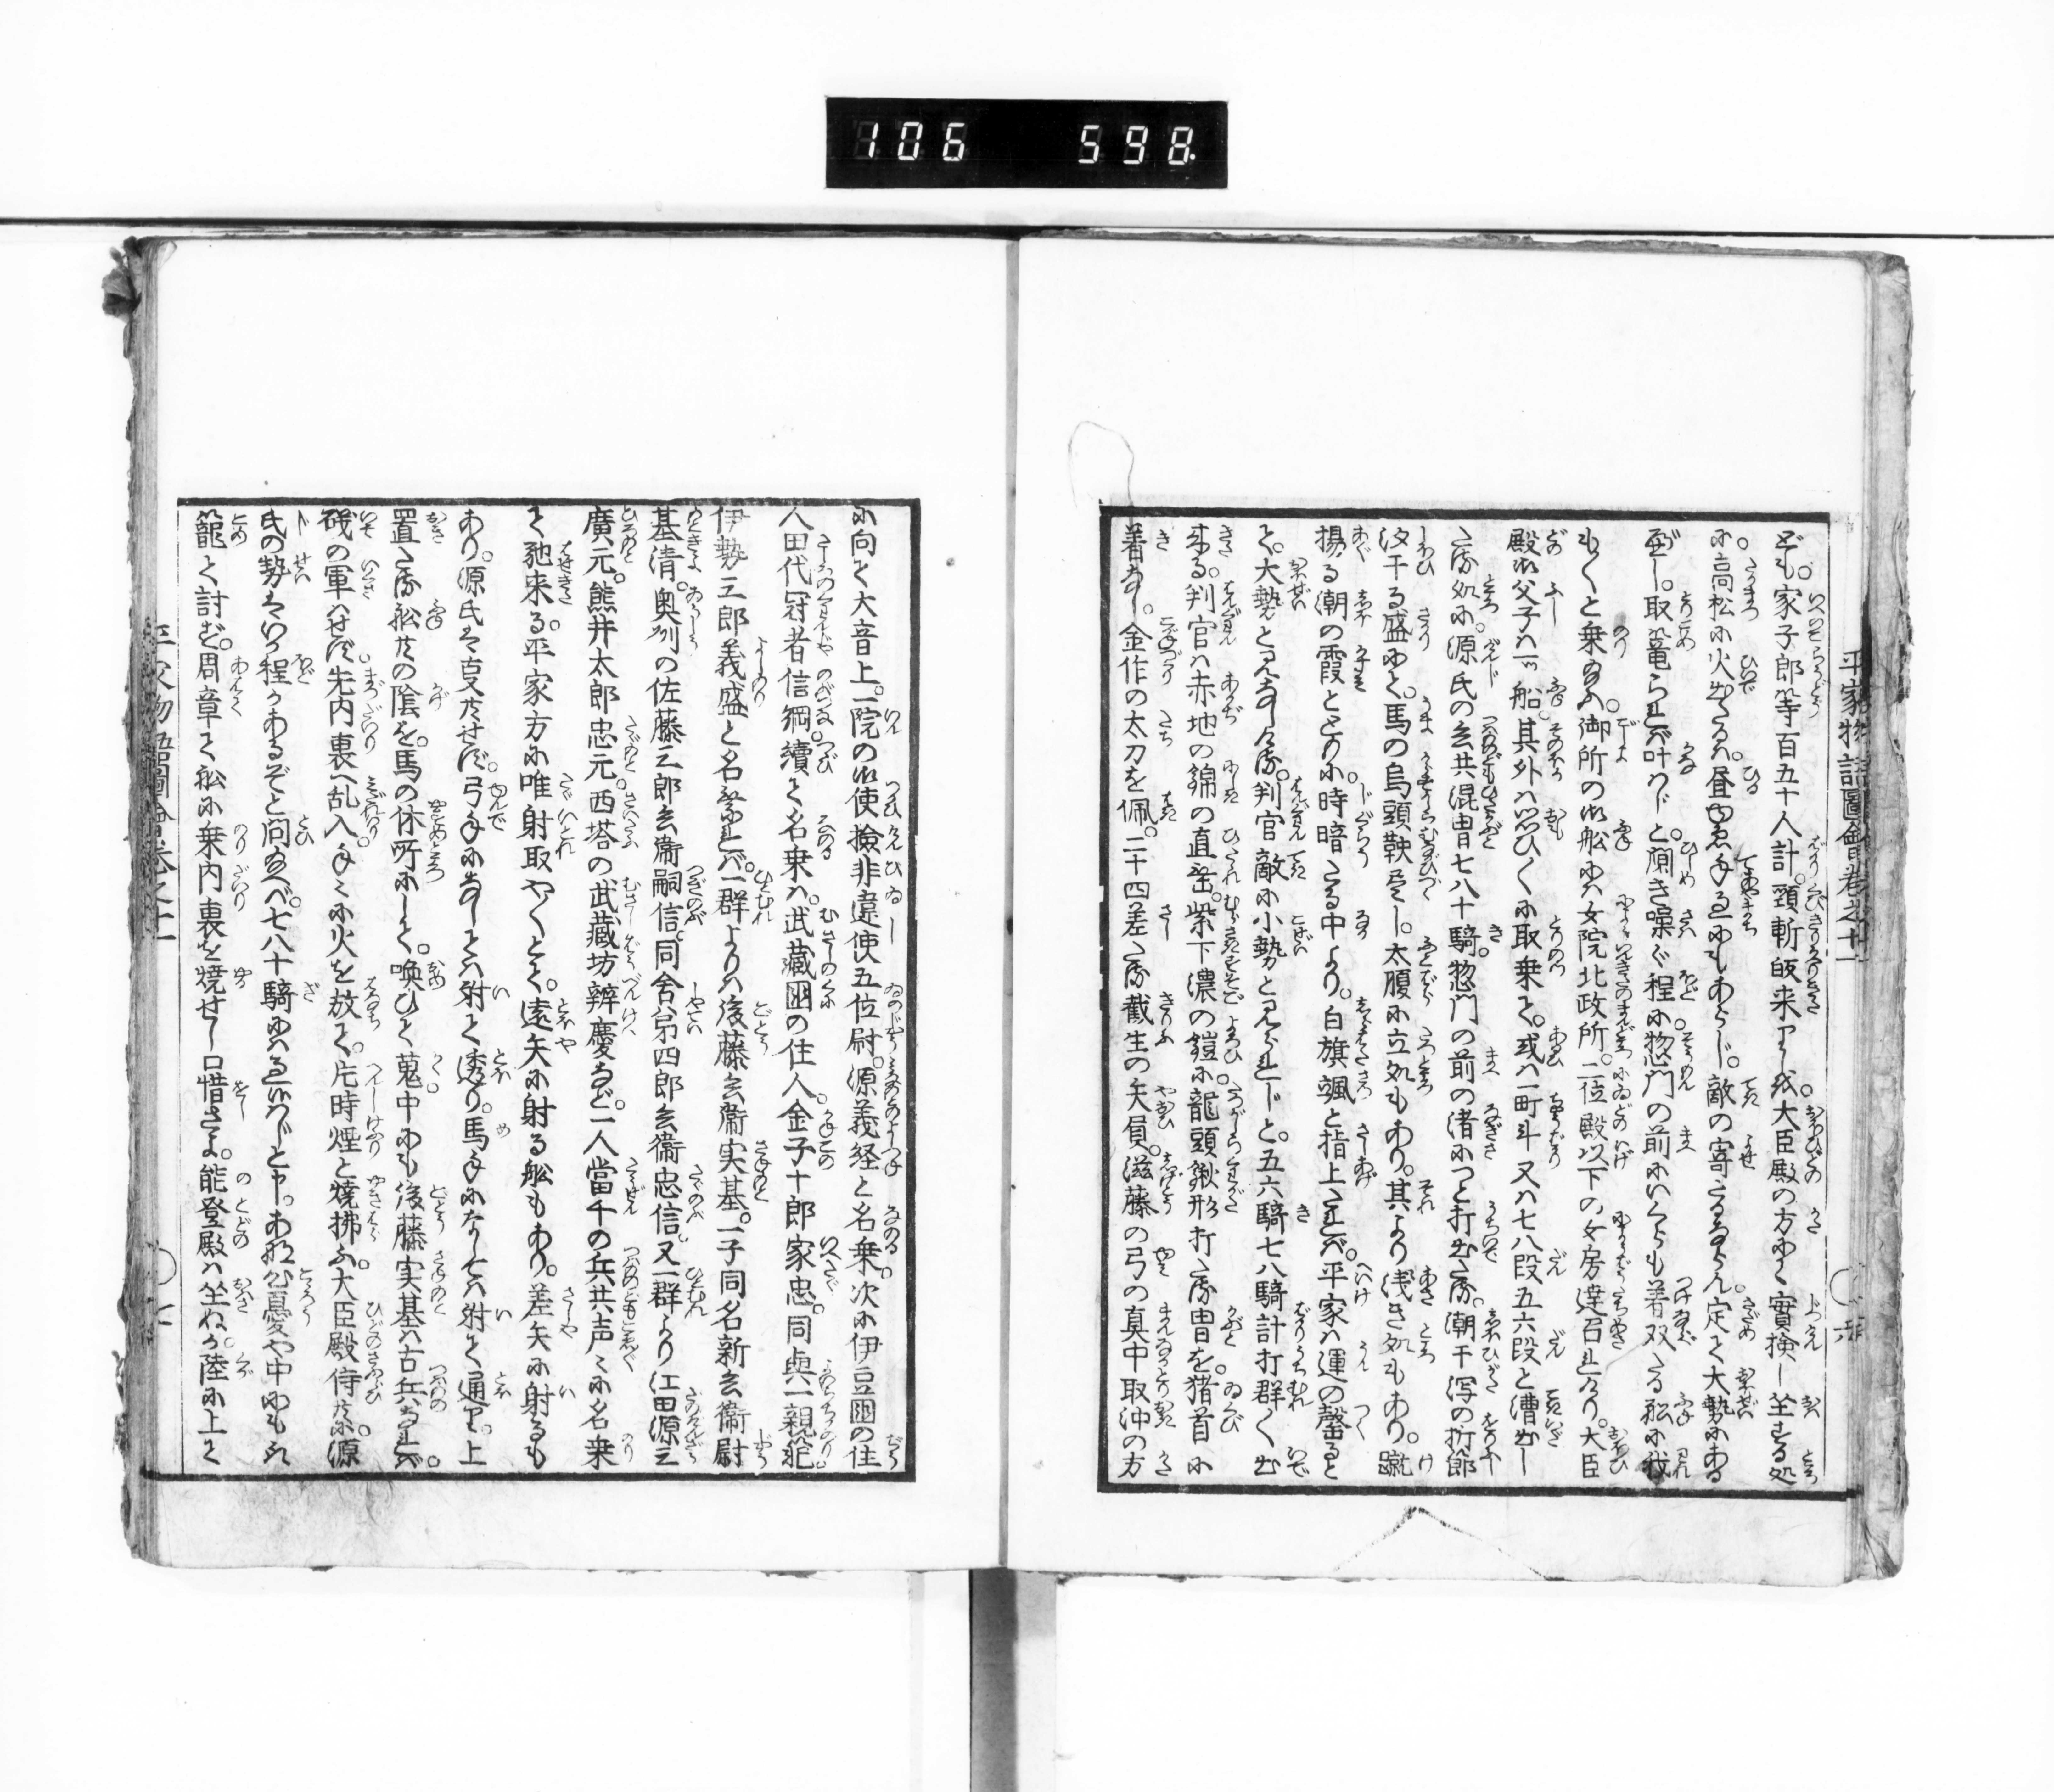 106 598
平家物語圖會巻之十一
ども。家子郎等百五十人計。頸斬皈来りしを。大臣殿の方にて實検し坐する処
に。高松に火出たるは。昼なれば手過にもあらじ。敵の寄たるならん。定て大勢にある
べし。取篭られば叶はじと。𩛰き噪ぐ程に。惣門の前にいくらも着双たる舩に我
もくと乗たまふ。御所の御船には女院北政所。二位殿以下の女房達召れけり。大臣
殿御父子は一ツ船。其外は思ひくに取乗て。或は一町斗又は七八段五六段と漕出し
たる処に。源氏の兵共混冑七八十騎。惣門の前の渚につと打出たる。潮干泻の折節
汐干る盛にて。馬の烏頭鞅尽し。太腹に立処もあり。其より浅き処もあり。蹴
揚る潮の霞とともに。時暗たる中より。白旗颯と指上たれば。平家は運の罄ると
て。大勢と見なしける。判官敵に小勢と見られじと。五六騎七八騎計打群く出
来る。判官は赤地の錦の直垂。紫下濃の鎧に龍頭鍬形打たる冑を。猪首に
着なし。金作の太刀を佩。二十四差たる截生の矢員。滋藤の弓の真中取沖の方
に向て大音上。一院の御使検非違使五位尉。源義経と名乗。次に伊豆國の住
人田代冠者信綱。續て名乗は。武藏國の住人。金子十郎家忠。同與一親範。
伊勢三郎義盛と名乗れば。一群よりは後藤兵衞実基。一子同名新兵衞尉
基清。奥州の佐藤三郎兵衞嗣信。同舎弟四郎兵衞忠信。又一群より江田源三
廣元。熊井太郎忠元。西塔の武藏坊辨慶など。一人當千の兵共声〻に名乗
て馳来る。平家方に唯射取やくとて。遠矢に射る舩もあり。差矢に射るも
あり。源氏は事共せず。弓手になしては射て透り。馬手になしては射て通り。上
置たる舩共の陰を。馬の休所にして。喚ひて蒐中にも後藤実基は古兵なれば。
磯の軍はせず。先内裏へ乱入。手〻に火を放て。片時煙と焼拂ふ。大臣殿侍共に。源
氏の勢はいか程かあるぞと問たまへば。七八十騎にはよも過じと申。あな心憂や中にもそれ
籠て討ず。周章て舩に乗内裏を焼せし口惜さよ。能登殿は坐ぬか。陸に上て
平家物語圖會巻之十一